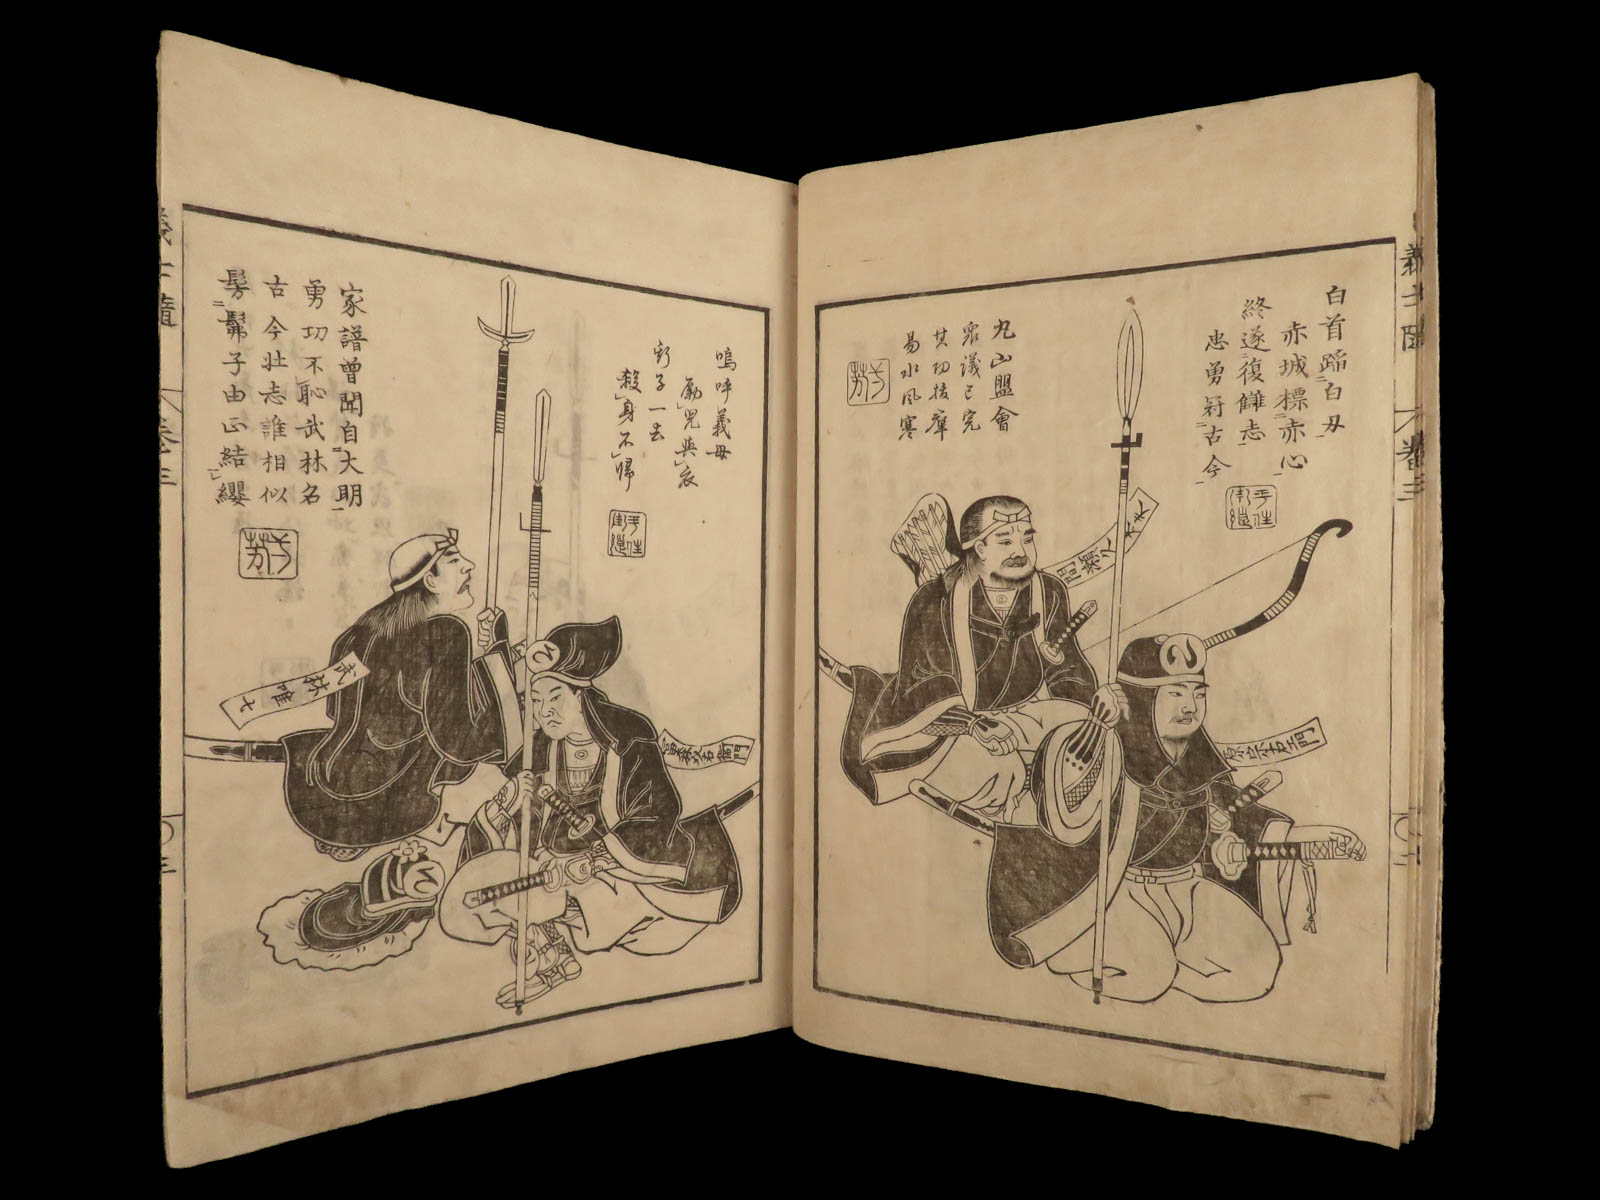 白首蹈白刃
赤城標赤心
終遂復讎志
忠勇冠古今
丸山盟會
衆議已完
其功拔群
易水風寒
間瀬久太夫
原宗右エ門
嗚呼義母
勵兒與衣
彩子一去
殺身不歸
家譜曾聞自大明
勇功不恥武林名
古今壮志誰相似
髣髴子由正結纓
武林唯七
卷三